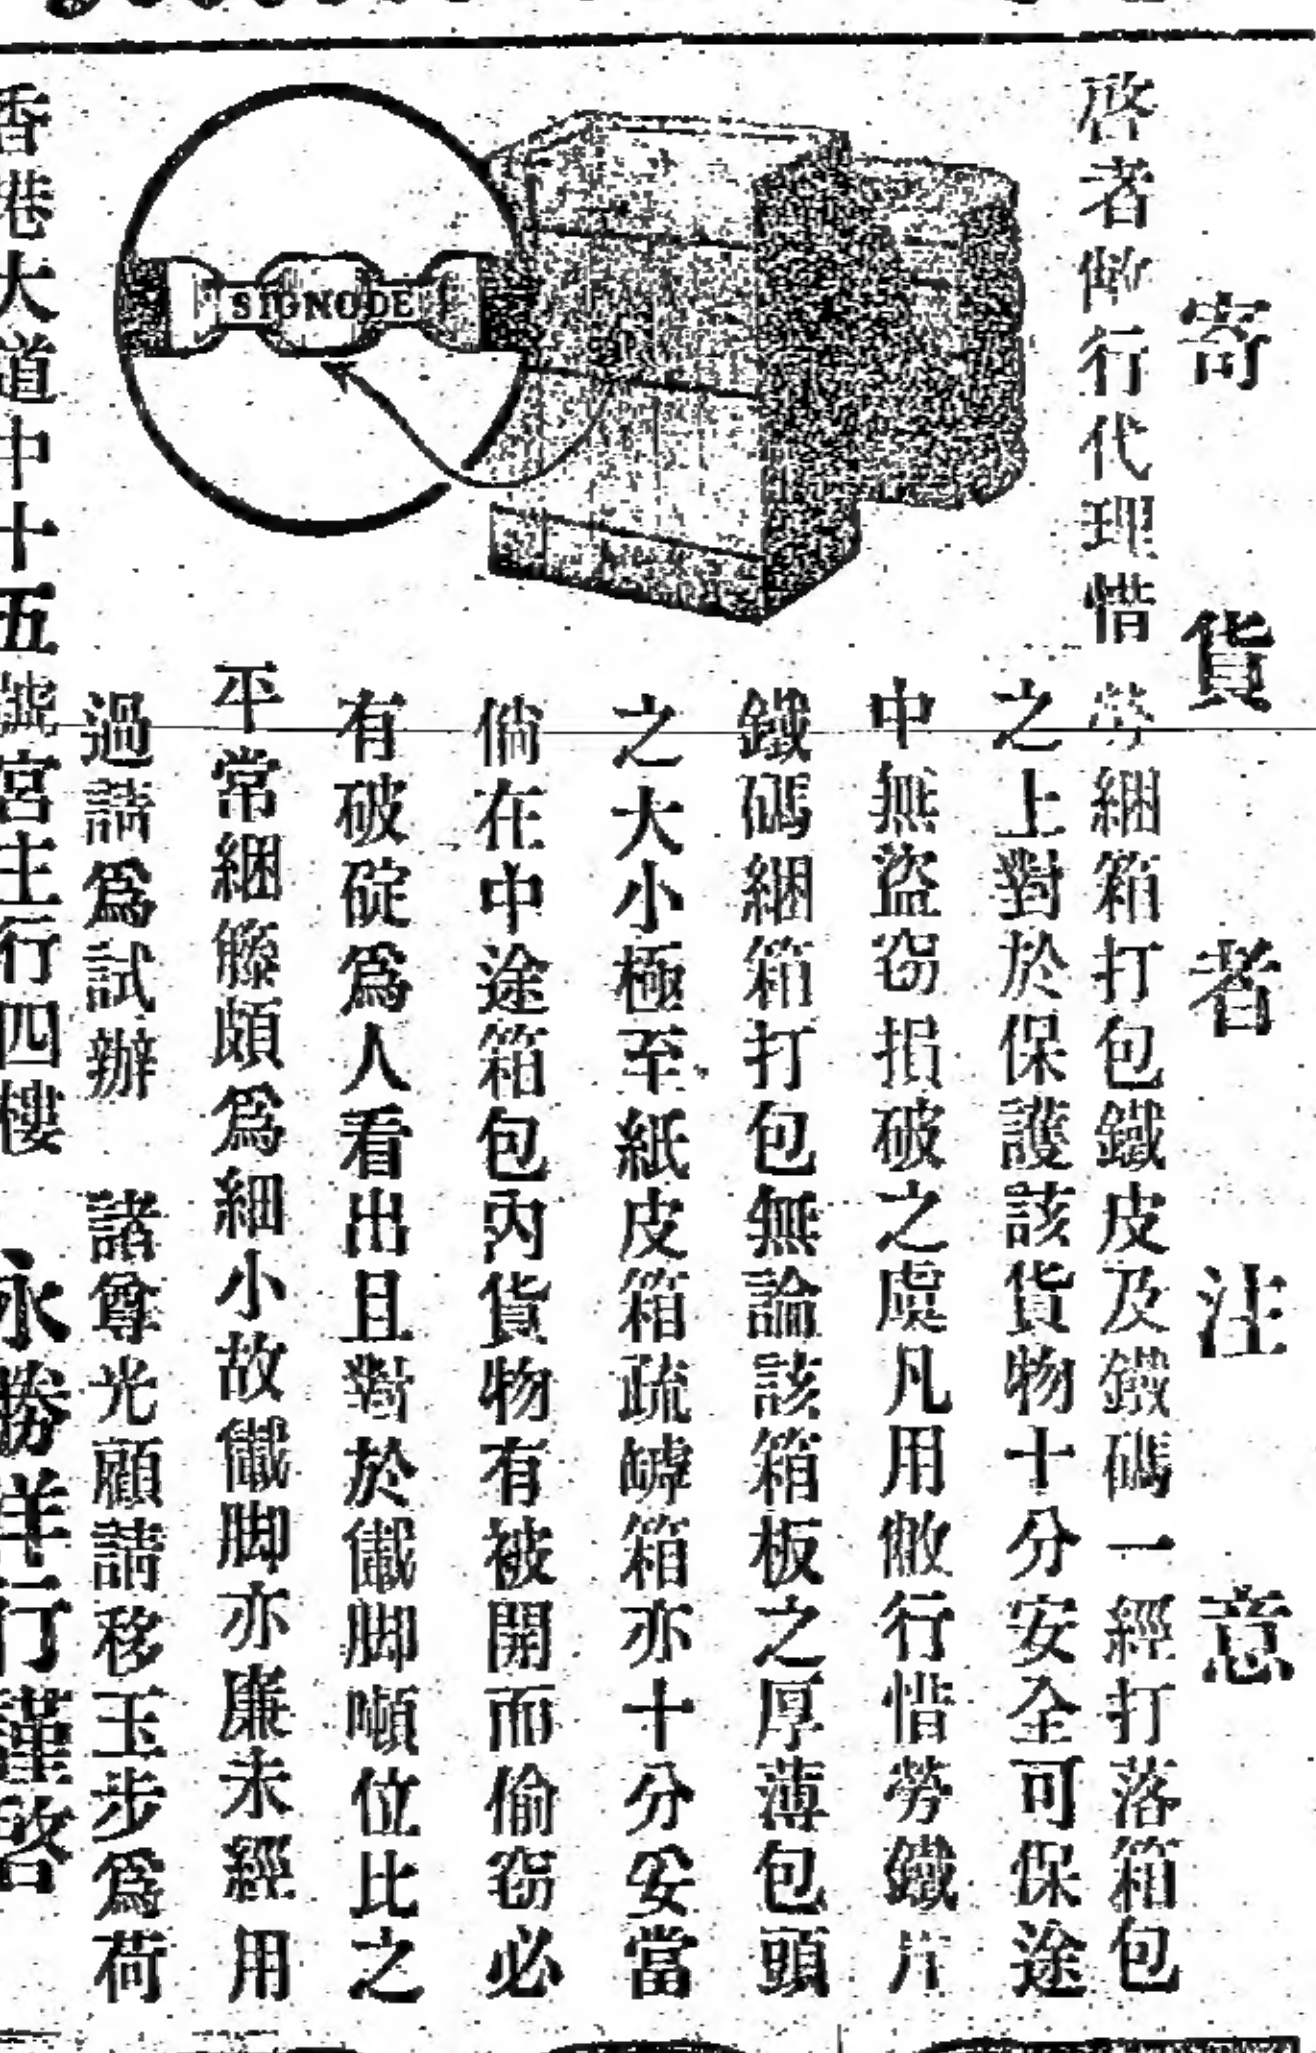 寄貨者注意
啓者敝行代理惜勞綑箱打包鐵皮及鐵碼一經打落箱包
之上對於保護該貨物十分安全可保途
中無盜窃損破之虞凡用敝行惜勞鐵片
鐵碼綑箱打包無論該箱板之厚薄包頭
之大小極至紙皮箱疏罅箱亦十分妥當
倘在中途箱包內貨物有被開而偷窃必
有破碇爲人看出且對於儎脚噸位比之
平常綑籐頗爲細小故儎脚亦廉未經用
過請爲試辦 諸尊光顧請移玉步爲荷
香港大道中十五號宮主行四樓 永勝洋行謹啓
SIGNODE